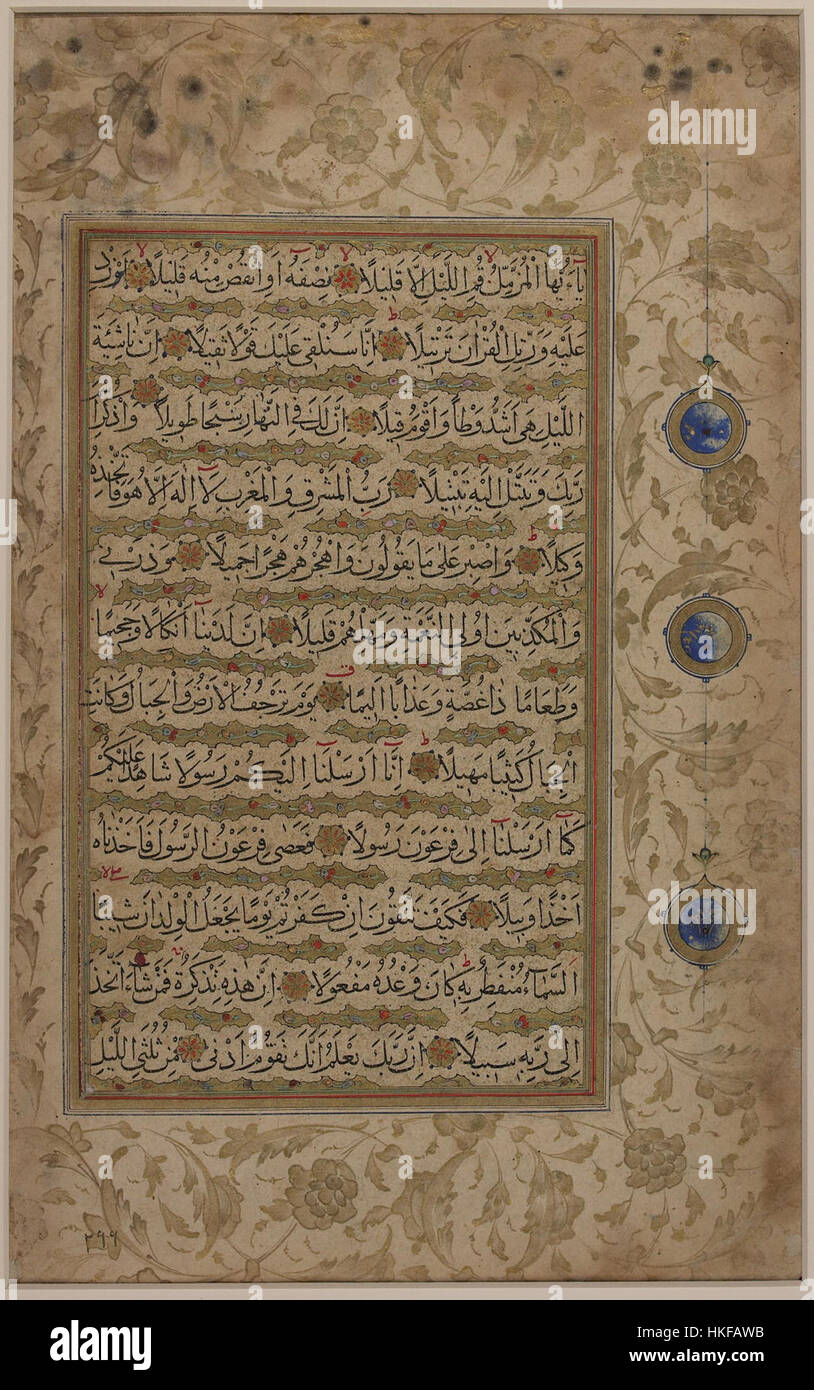 يَا أَيُّهَا الْمُزَّمِّلُ قُمِ اللَّيْلَ إِلَّا قَلِيلًا نِصْفَهُ أَوِ انْقُصْ مِنْهُ قَلِيلًا أَوْ زِدْ
عَلَيْهِ وَرَتِّلِ الْقُرْآنَ تَرْتِيلًا إِنَّا سَنُلْقِي عَلَيْكَ قَوْلًا ثَقِيلًا إِنَّ نَاشِئَةَ
اللَّيْلِ هِيَ أَشَدُّ وَطْأً وَأَقْوَمُ قِيلًا إِنَّ لَكَ فِي النَّهَارِ سَبْحًا طَوِيلًا وَاذْكُرِ ا
رَبِّكَ وَتَبَتَّلْ إِلَيْهِ تَبْتِيلًا رَبُّ الْمَشْرِقِ وَالْمَغْرِبِ لَا إِلَهَ إِلَّا هُوَ فَاتَّخِذْهُ
وَكِيلًا وَاصْبِرْ عَلَى مَا يَقُولُونَ وَاهْجُرْهُمْ هَجْرًا جَمِيلًا وَذَرْنِي
وَالْمُكَذِّبِينَ أُولِي النَّعْمَةِ وَمَهِّلْهُمْ قَلِيلًا إِنَّ لَدَيْنَا أَنْكَالًا وَجَحِيمًا
وَطَعَامًا ذَا غُصَّةٍ وَعَذَابًا أَلِيمًا يَوْمَ تَرْجُفُ الْأَرْضُ وَالْجِبَالُ وَكَانَتِ
الْجِبَالُ كَثِيبًا مَهِيلًا إِنَّا أَرْسَلْنَا إِلَيْكُمْ رَسُولًا شَاهِدًا عَلَيْكُمْ
كَمَا أَرْسَلْنَا إِلَى فِرْعَوْنَ رَسُولًا فَعَصَى فِرْعَوْنُ الرَّسُولَ فَأَخَذْنَاهُ
أَخْذًا وَبِيلًا فَكَيْفَ تَتَّقُونَ إِنْ كَفَرْتُمْ يَوْمًا يَجْعَلُ الْوِلْدَانَ شِيبًا
السَّمَاءُ مُنْفَطِرٌ بِهِ كَانَ وَعْدُهُ مَفْعُولًا إِنَّ هَذِهِ تَذْكِرَةٌ فَمَنْ شَاءَ اتَّخَذَ
إِلَى رَبِّهِ سَبِيلًا إِنَّ رَبَّكَ يَعْلَمُ أَنَّكَ تَقُومُ أَدْنَى مِنْ ثُلُثَيِ اللَّيْلِ
٢٩٩
alamy
alamy
alamy
alamy
alamy
Image ID: HKFAWB
www.alamy.com